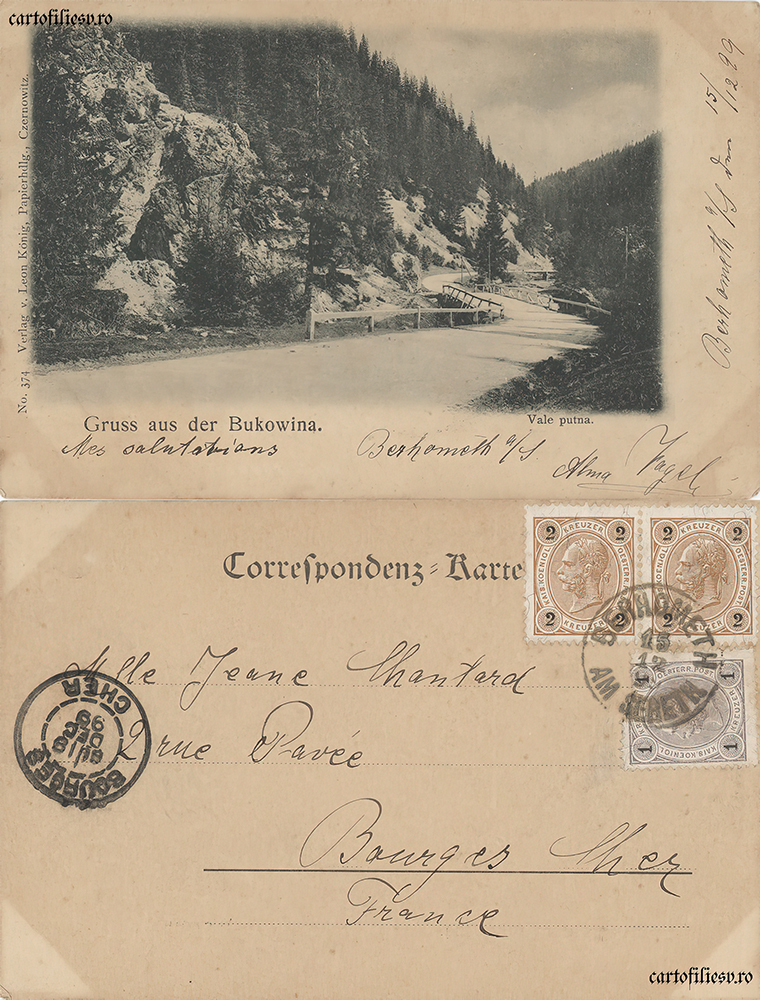 cartofiliesv.ro
No. 374 Verlag v. Leon König, Papierhdlg., Czernowitz.
Berhometh a/S den 15/12 99
Gruss aus der Bukowina.
Vale putna.
Mes salutations
Berhometh a/S.
Alma
Correspondenz-Karte
2 KREUZER 2
KAIS. KOENIGL. OESTERR. POST.
2 KREUZER 2
2 KREUZER 2
KAIS. KOENIGL. OESTERR. POST.
2 KREUZER 2
BERHOMETH
15
12
AM SERETH
1 OESTERR. POST. 1
KREUZER
1 KAIS. KOENIGL. 1
Mlle Jeane Chantard
2 rue Pavée
Bourges Cher
France
BOURGES
DEC
99
CHER
cartofiliesv.ro